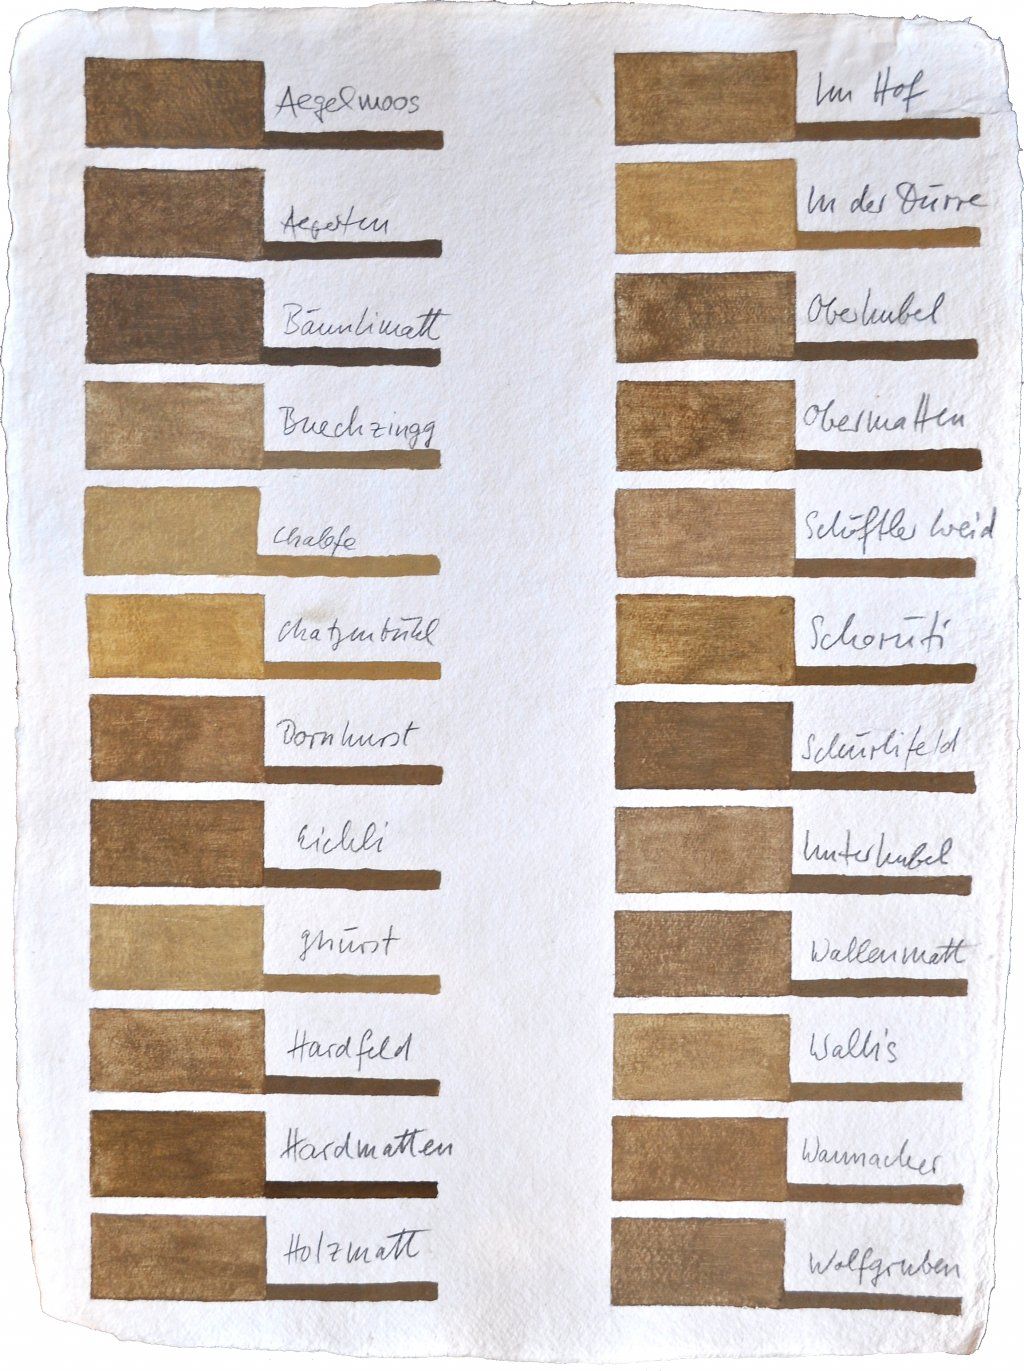 Aegelmoos
Aegerten
Bäumlimatt
Buechzingg
Chalofe
Chatzenbühl
Dornhurst
Eichli
ghürst
Hardfeld
Hardmatten
Holzmatt
Im Hof
In der Dürre
Oberhubel
Obermatten
Schöftler Weid
Schorüti
Schürlifeld
Unterhubel
Wallenmatt
Wallis
Wannacher
Wolfgruben